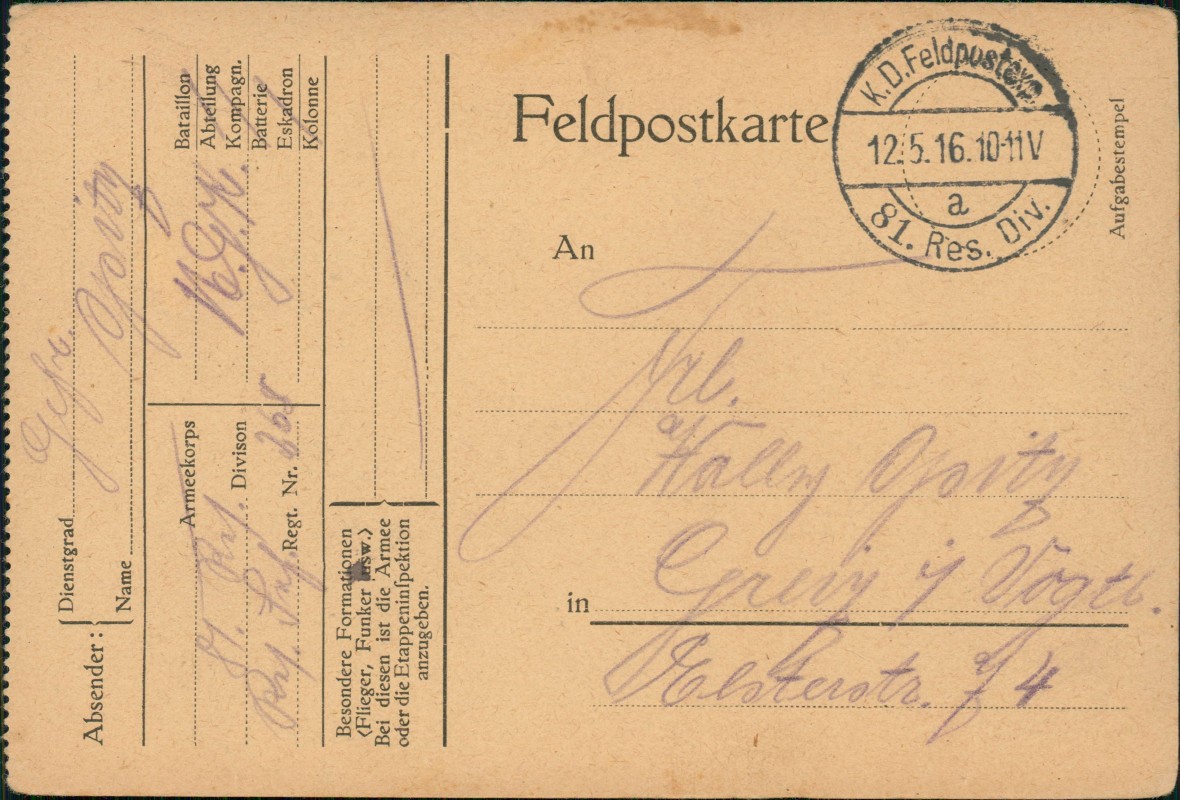 Absender:
Dienstgrad Gefr.
Name Opitz
Bataillon
Abteilung
Kompagn.
Batterie
Eskadron
Kolonne
Armeekorps
81. Res. Divison
Res. Inf. Regt. Nr. 268
Besondere Formationen
<Flieger, Funker usw.>
Bei diesen ist die Armee
oder die Etappeninſpektion
anzugeben.
Feldpostkarte
K.D.Feldpostexp.
12.5.16.10-11V
a
81. Res. Div.
Aufgabestempel
An
Frl.
Wally Opitz
in Greiz i/ Vogtl.
Elsterstr. 4